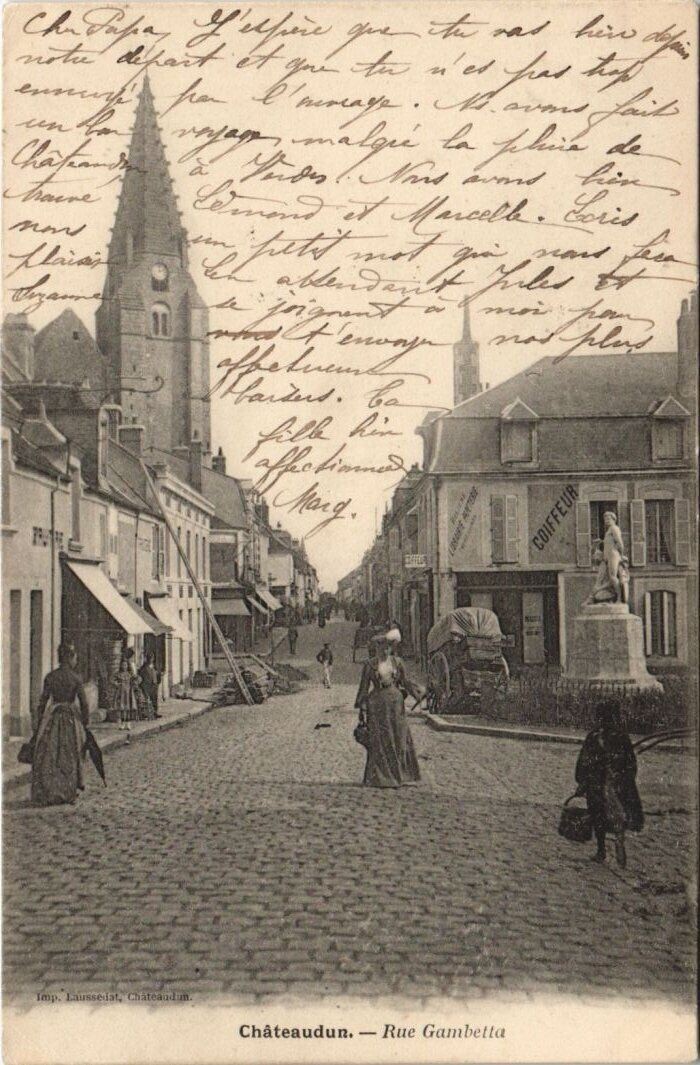 Cher Papa, J'espère que tu vas bien depuis
notre départ et que tu n'es pas trop
ennuyé par l'ouvrage. Ns. avons fait
un bon voyage, malgré la pluie de
Châteaudun à Verdes. Nous avons bien
trouvé Edmond et Marcelle. Ecris
nous un petit mot qui nous fera
plaisir. En attendant Jules et
Suzanne se joignent à moi pour
t'envoyer nos plus
affectueux
baisers. Ta
fille bien
affectionnée
Marg.
FRUITERIE
LIBRAIRIE
COIFFEUR
COIFFEUR
Imp. Laussedat, Châteaudun.
Châteaudun. — Rue Gambetta